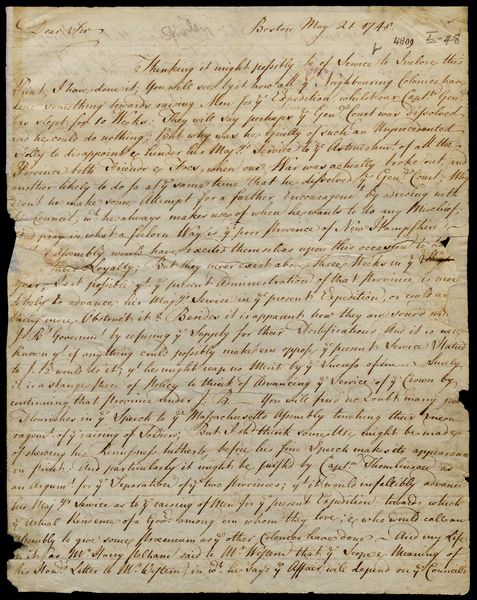 Dear Sir Boston May 21 1740
Shirley
4809 I-48
Thinking it might possibly be of Service to Inclose this
Print, I have done it; You will see by it how all yᵉ Neighbouring Colonies have
done something towards raising Men for yᵉ Expedition, whilst our Captⁿ Genˡ
has slept for 10 Weeks. They will say perhaps yᵉ Genˡ Court was dissolved
and he could do nothing; But why was he guilty of such an Unprecedented
Folly to disappoint & hinder his Majᵗʸˢ Service to yᵉ Astonishmᵗ of all the
Province both Friends & Foes, when one War was actually broke out, and
another likely to do so at yᵉ same time that he dissolved yᵉ Genˡ Court; Why
didn't he make some Attempt for a farther Encouragemᵗ by advising with
the Council, wᶜʰ he always makes use of when he wants to do any Mischief.
And pray in what a forlorn Way is yᵉ poor Province of New Hampshire
Assembly would have exerted themselves upon this occasion to
their Loyalty; But they never exist above three Weeks in yᵉ
year. Is it possible yᵗ yᵉ present Administration of that Province is most
likely to advance his Majᵗʸˢ Service in yᵉ present Expedition, or could any
thing more Obstruct it & Besides it is apparent how they are
J. B.ˢ Governmᵗ by refusing yᵉ Supply for their Fortifications. And it is well
known yᵗ if anything could possibly make 'em oppose yᵉ present Service
to J. B. would do it; yᵗ he might reap no Merit by yᵉ Success of 'em — Surely
it is a strange piece of Policy to think of Advancing yᵉ Service of yᵉ Crown by
continuing that Province under J. B — You will find no Doubt many
Flourishes in yᵉ Speech to yᵉ Massachusetts Assembly touching their
ragemᵗ of yᵉ raising of Soldiers; But I should think some Use might be made
of shewing his Remissness hitherto, before his fine Speech makes its appearance
in print. And particularly it might be push'd by Captⁿ Thomlinson as
an Argumᵗ for yᵉ Separation of yᵉ two Provinces; yᵗ it would infallibly advance
his Majᵗʸˢ Service as to yᵉ raising of Men for yᵉ present Expedition towards which
yᵉ actual Presence of a Govʳ among 'em whom they love, & who would call an
Assembly to give some Præmium as yᵉ other Colonies have done — And my Life
is it, as Mʳ Harry said to Mʳ Western that yᵉ Scope & Meaning of
this Honᵇˡ Letter to Mʳ Western, in wᶜʰ he says yᵉ Affair will depend on yᵉ Councils